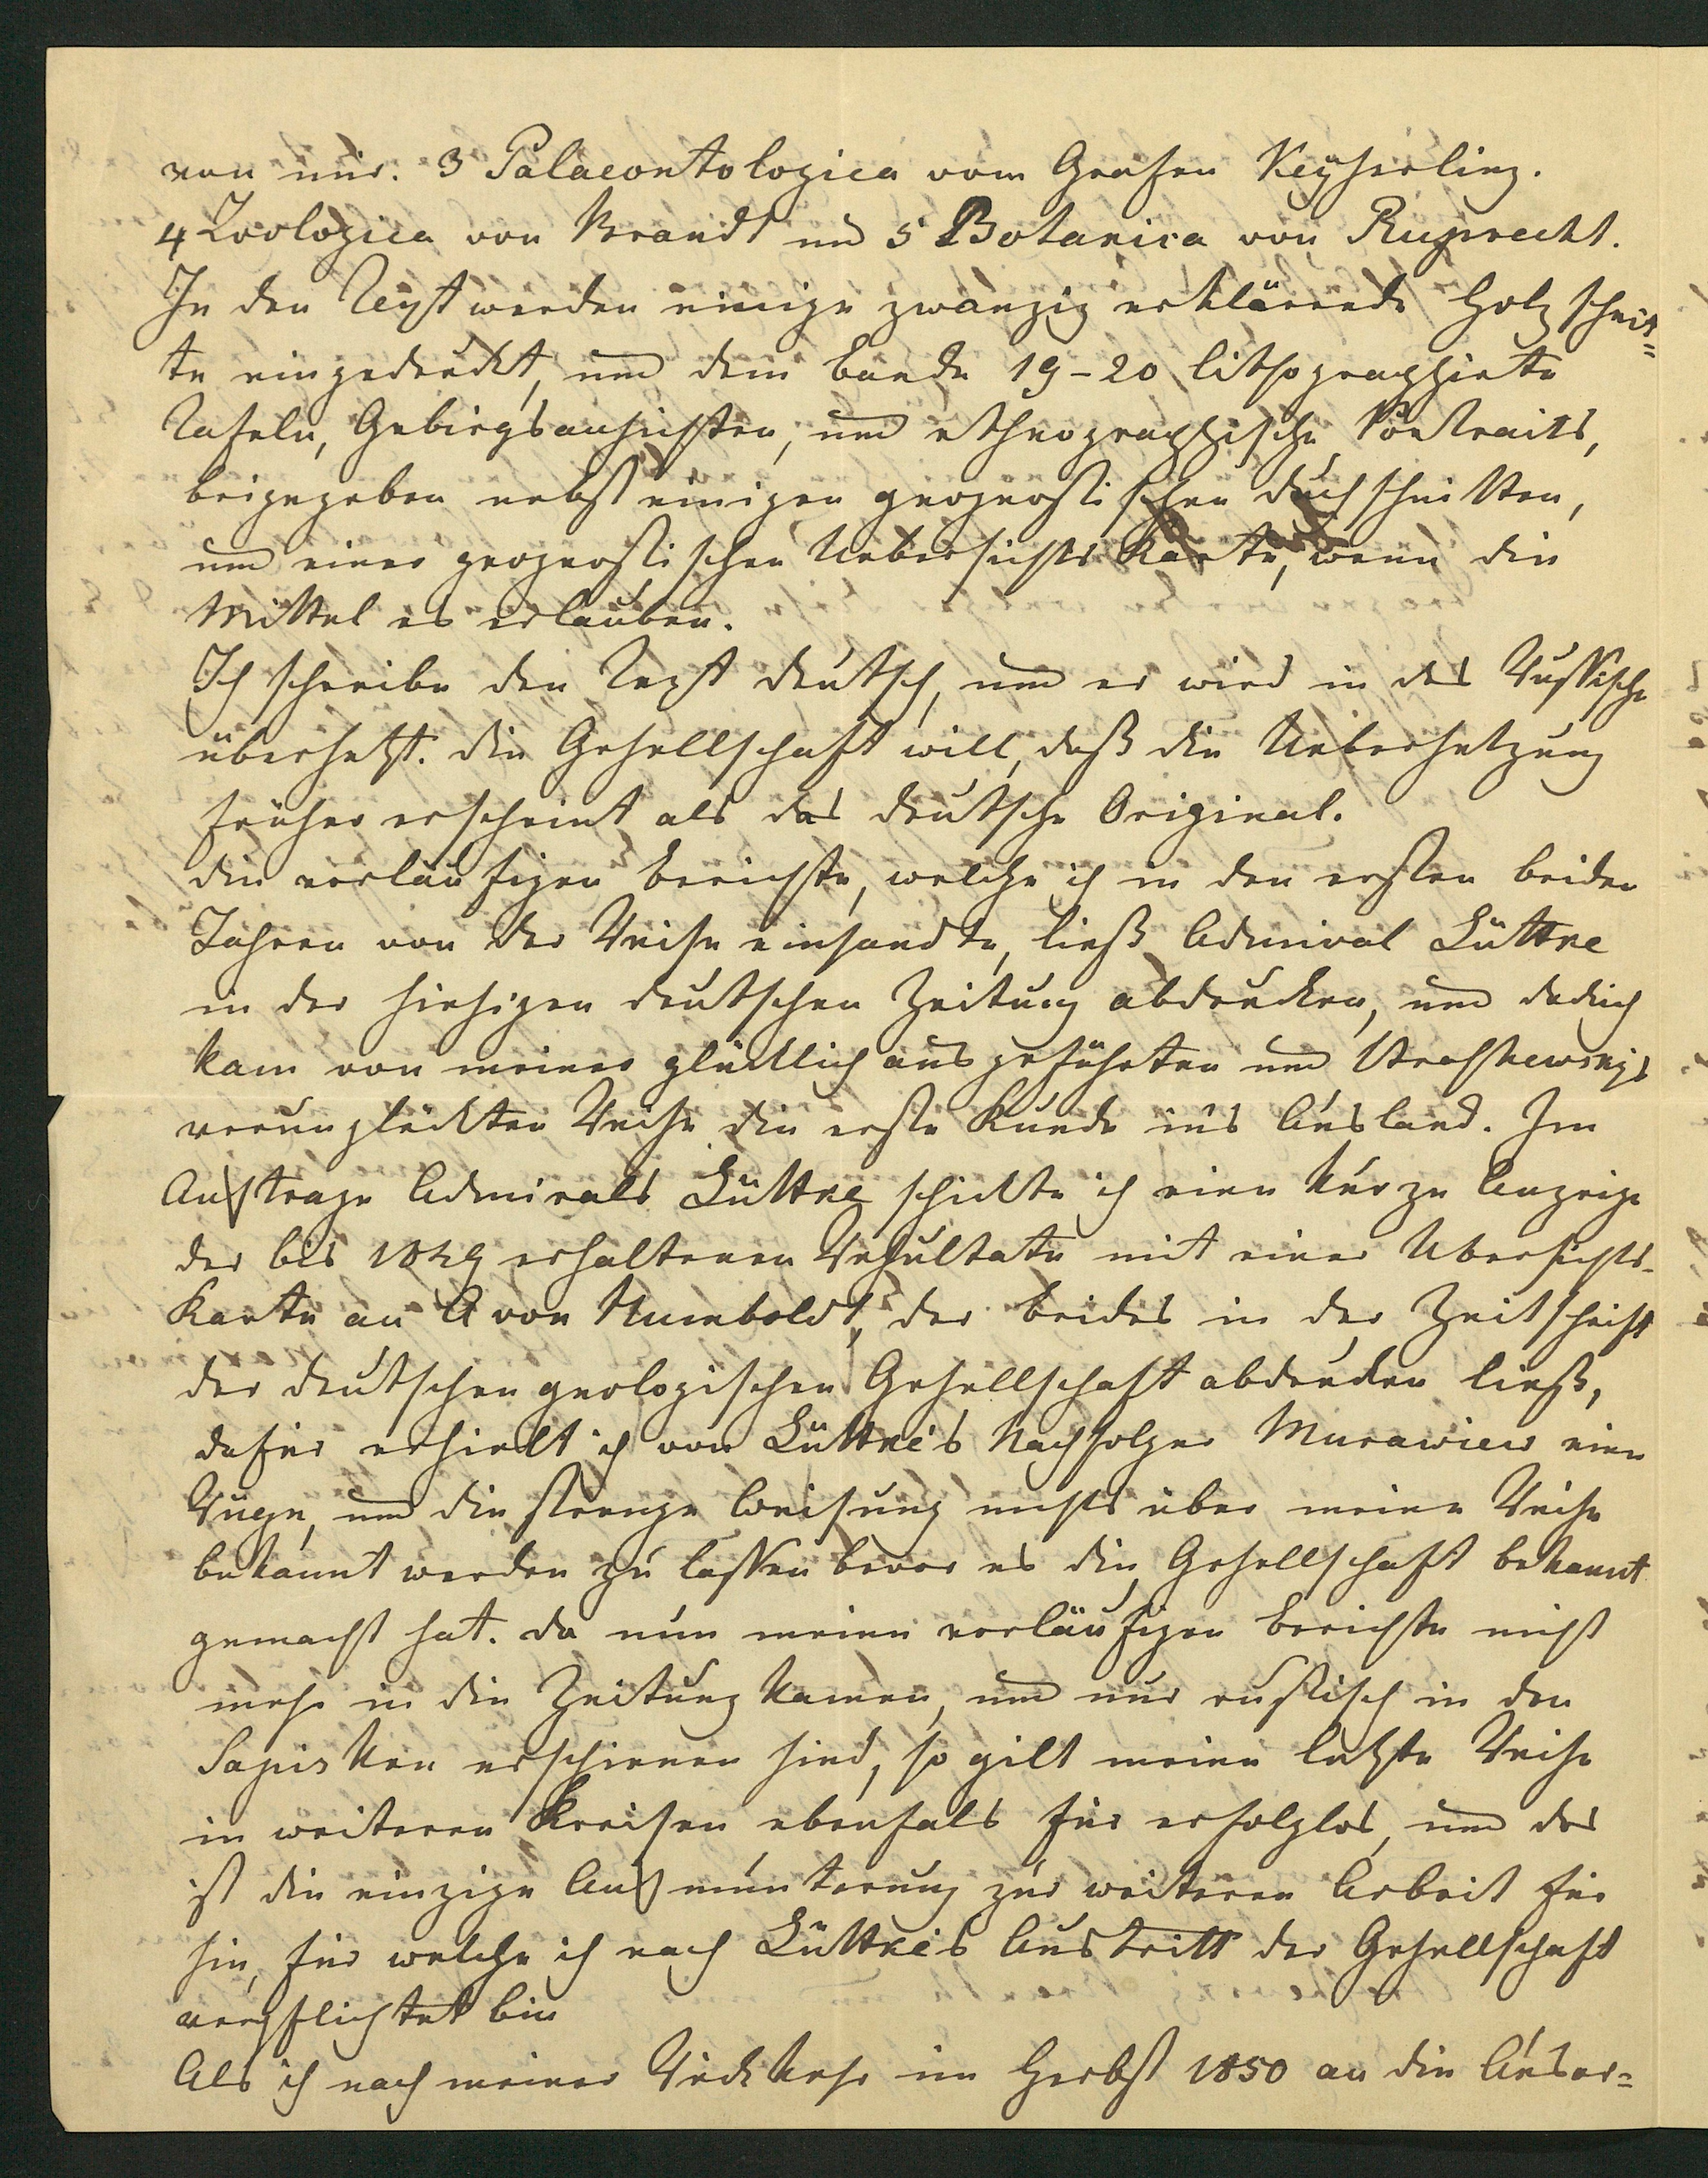 von mir. 3 Palaeontologica vom Grafen Keyserling.
4 Zoologica von Brandt und 5 Botanica von Ruprecht.
In den Text werden einige zwanzig erklärende Holzschnit=
te eingedruckt, und dem Bande 19-20 lithographirte
Tafeln, Gebirgsansichten, und ethnographische Portraits,
beigegeben nebst einigen geognostischen Duchschnitten,
und einer geognostischen Uebersichts Karte, wenn die
Mittel es erlauben.
Ich schreibe den Text deutsch, und er wird in das Russische
übersetzt. die Gesellschaft will, daß die Uebersetzung
früher erscheint als das deutsche Original.
die vorläufigen Berichte, welche ich in den ersten beiden
Jahren von der Reise einsandte, ließ Admiral Lüttke
in der hiesigen deutschen Zeitung abdrucken, und dadurch
kam von meiner glücklich ausgeführten und Strashewskys
verunglückten Reise die erste Kunde ins Ausland. Im
Auftrage Admirals Lüttke schickte ich eine kurze Anzeige
der bis 1849 erhaltenen Resultate mit einer Ubersichts-
Karte an A von Humboldt, der beides in der Zeitschrift
der deutschen geologischen Gesellschaft abdrucken ließ,
dafür erhielt ich von Lüttke's Nachfolger Murawiew eine
Rüge, und die strenge Weisung nichts über meine Reise
bekannt werden zu lassen bevor es die Gesellschaft bekannt
gemacht hat. da nun meine vorläufigen Berichte nicht
mehr in die Zeitung kamen, und nur russisch in den
Sapisken erschienen sind, so gilt meine letzte Reise
in weiteren Kreisen ebenfals für erfolglos, und das
ist die einzige Aufmunterung zur weiteren Arbeit für
sie, für welche ich nach Lüttke's Austritt der Gesellschaft
verpflichtet bin
Als ich nach meiner Rückkehr im Herbst 1850 an die Ausar=